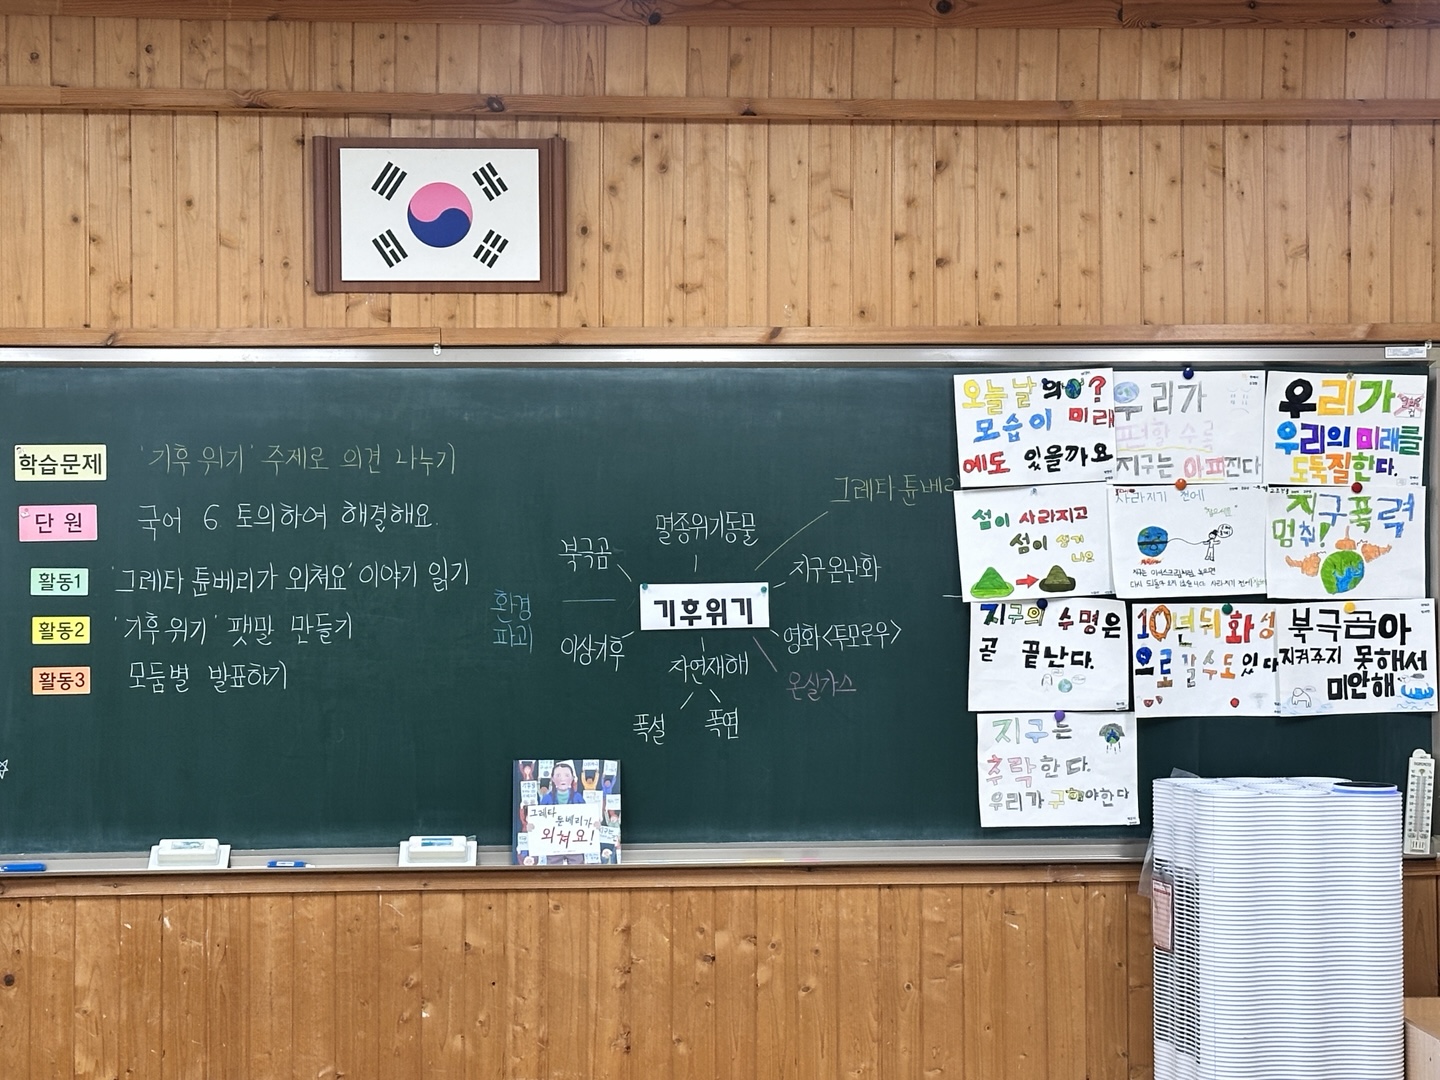 학습문제
'기후 위기' 주제로 의견 나누기
단 원
국어 6 토의하여 해결해요.
활동1
'그레타 툰베리가 외쳐요' 이야기 읽기
활동2
'기후 위기' 팻말 만들기
활동3
모둠별 발표하기
기후위기
멸종위기동물
그레타 툰베리
북극곰
지구온난화
환경
파괴
이상기후
영화<투모로우>
자연재해
온실가스
폭설
폭염
그레타
툰베리가
외쳐요!
오늘날의
?
모습이 미래
에도 있을까요
우리가
편할 수록
지구는 아파진다
우리가
우리의 미래를
도둑질한다.
섬이 사라지고
섬이 생기
나요
사라지기 전에
지구 폭력
멈춰!
지구의 수명은
곧 끝난다.
10년뒤 화성
으로 갈수도 있다
북극곰아
지켜주지 못해서
미안해
지구는
추락한다.
우리가 구해야한다